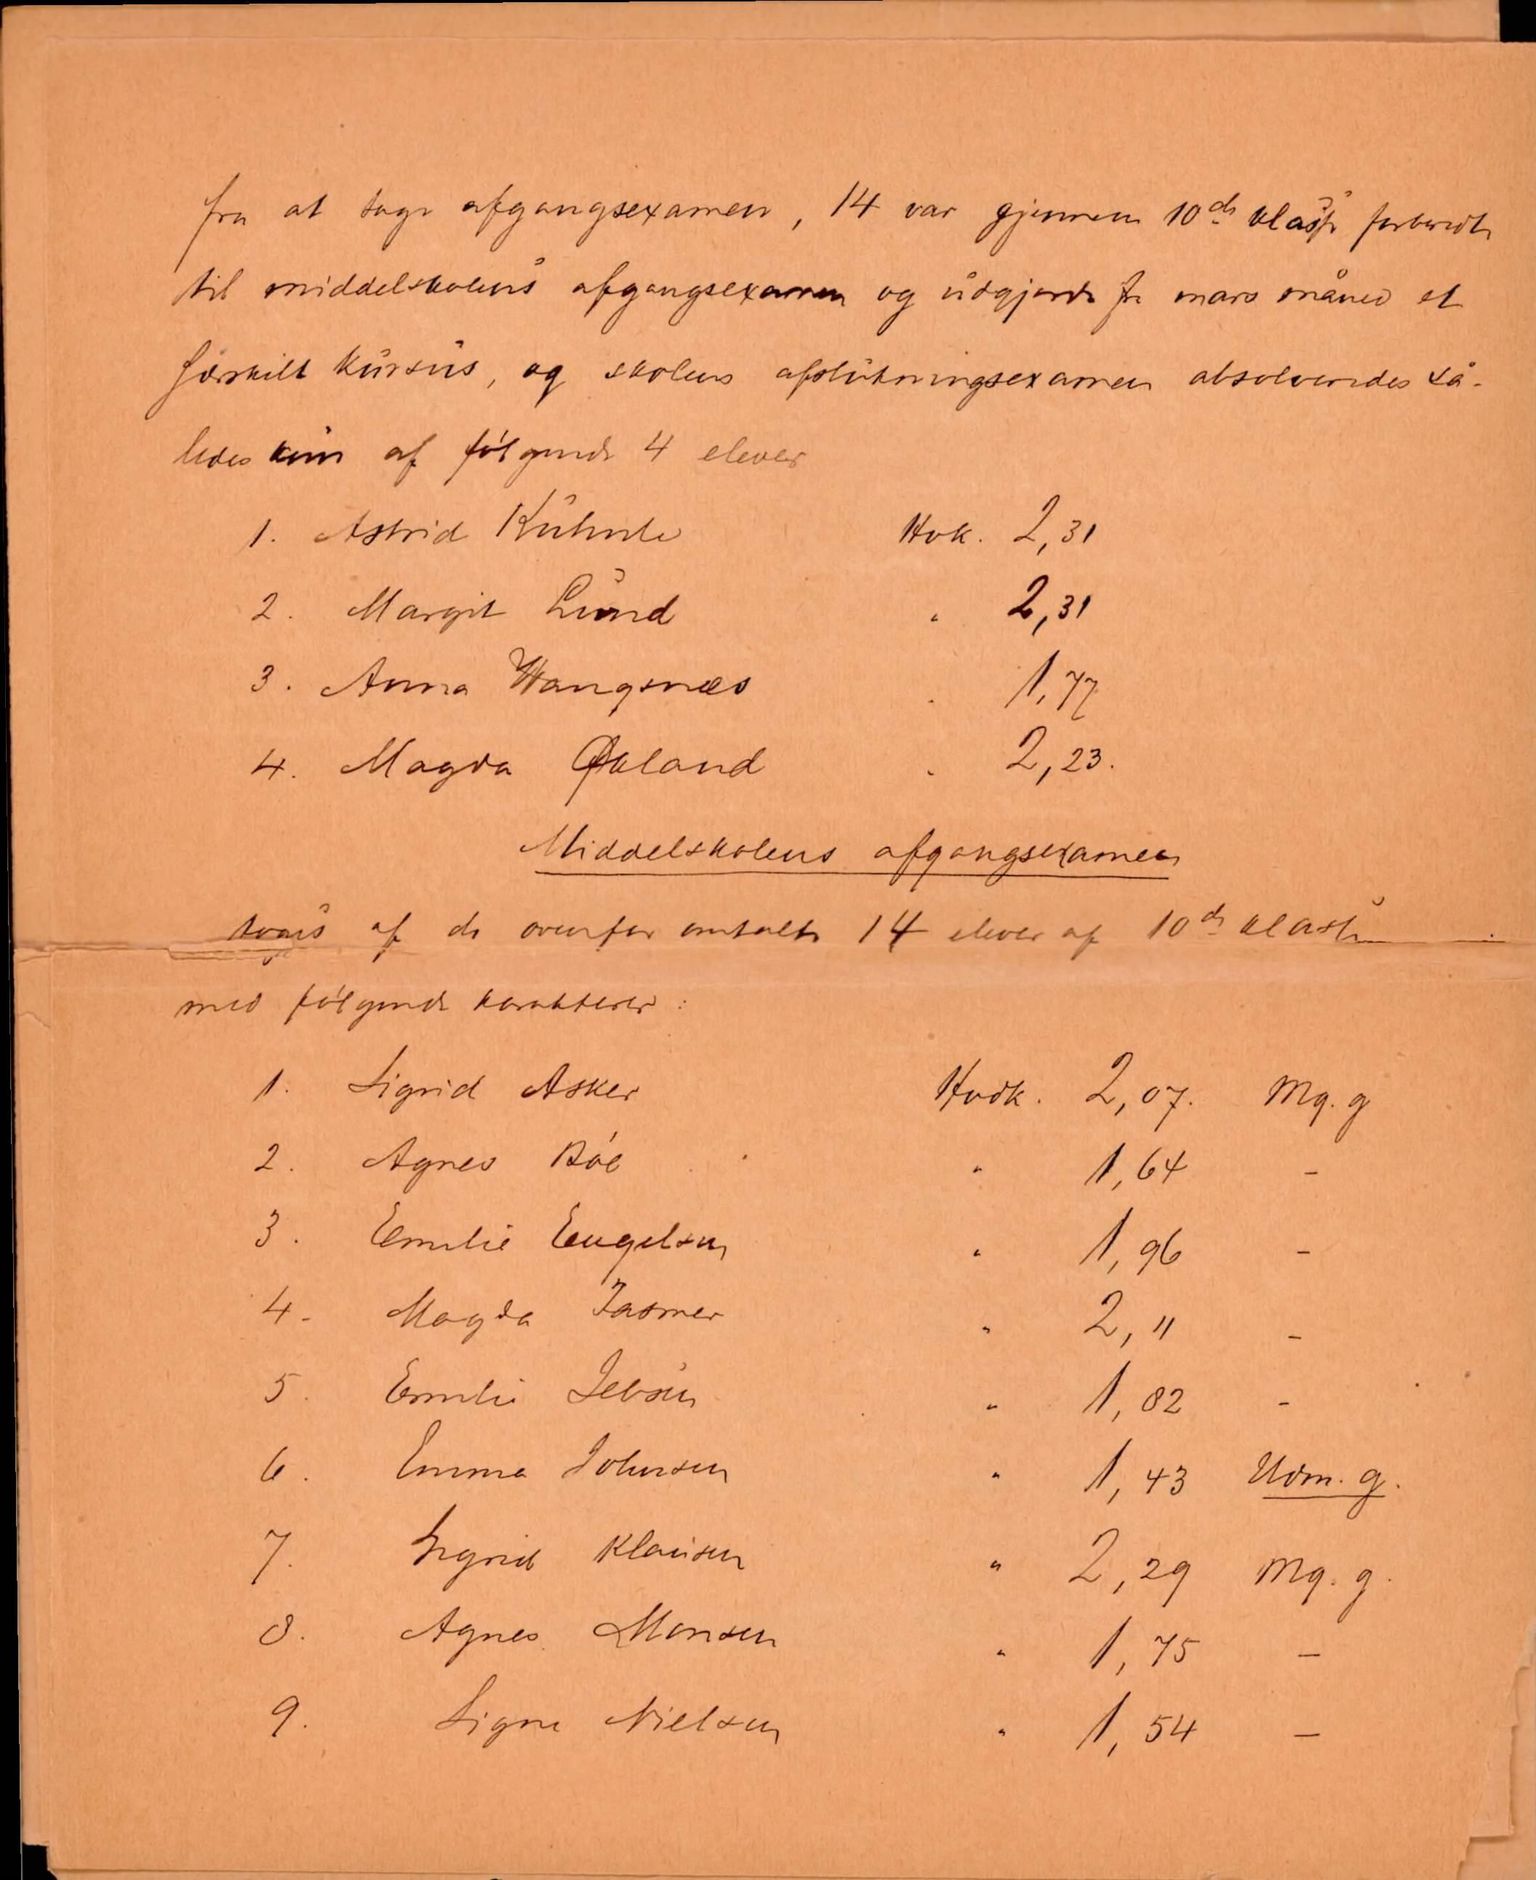 fra at tage afgangsexamen, 14 var gjennem 10de klasse forberedte
til middelskolens afgangsexamen og udgjorde fra mars måned et
særskilt kursus, og skolens afslutningsexamen absolveredes så-
ledes kun af følgende 4 elever
1. Astrid Kühnle Hvk. 2,31
2. Margit Lund " 2,31
3. Anna Wangsnæs " 1,77
4. Magda Økland " 2,23.
Middelskolens afgangsexamen
toges af de ovenfor omtalte 14 elever af 10de klasse
med følgende karakterer:
1. Sigrid Asker Hvdk. 2,07. Mg. g
2. Agnes Bóe " 1,64 –
3. Emilie Engelsen " 1,96 –
4. Magda Jasmer " 2,11 –
5. Emilie Jebsen " 1,82 –
6. Emma Johnsen " 1,43 Udm. g.
7. Sigrid Klausen " 2,29 Mg. g.
8. Agnes Monsen " 1,75 –
9. Signe Nielsen " 1,54 –